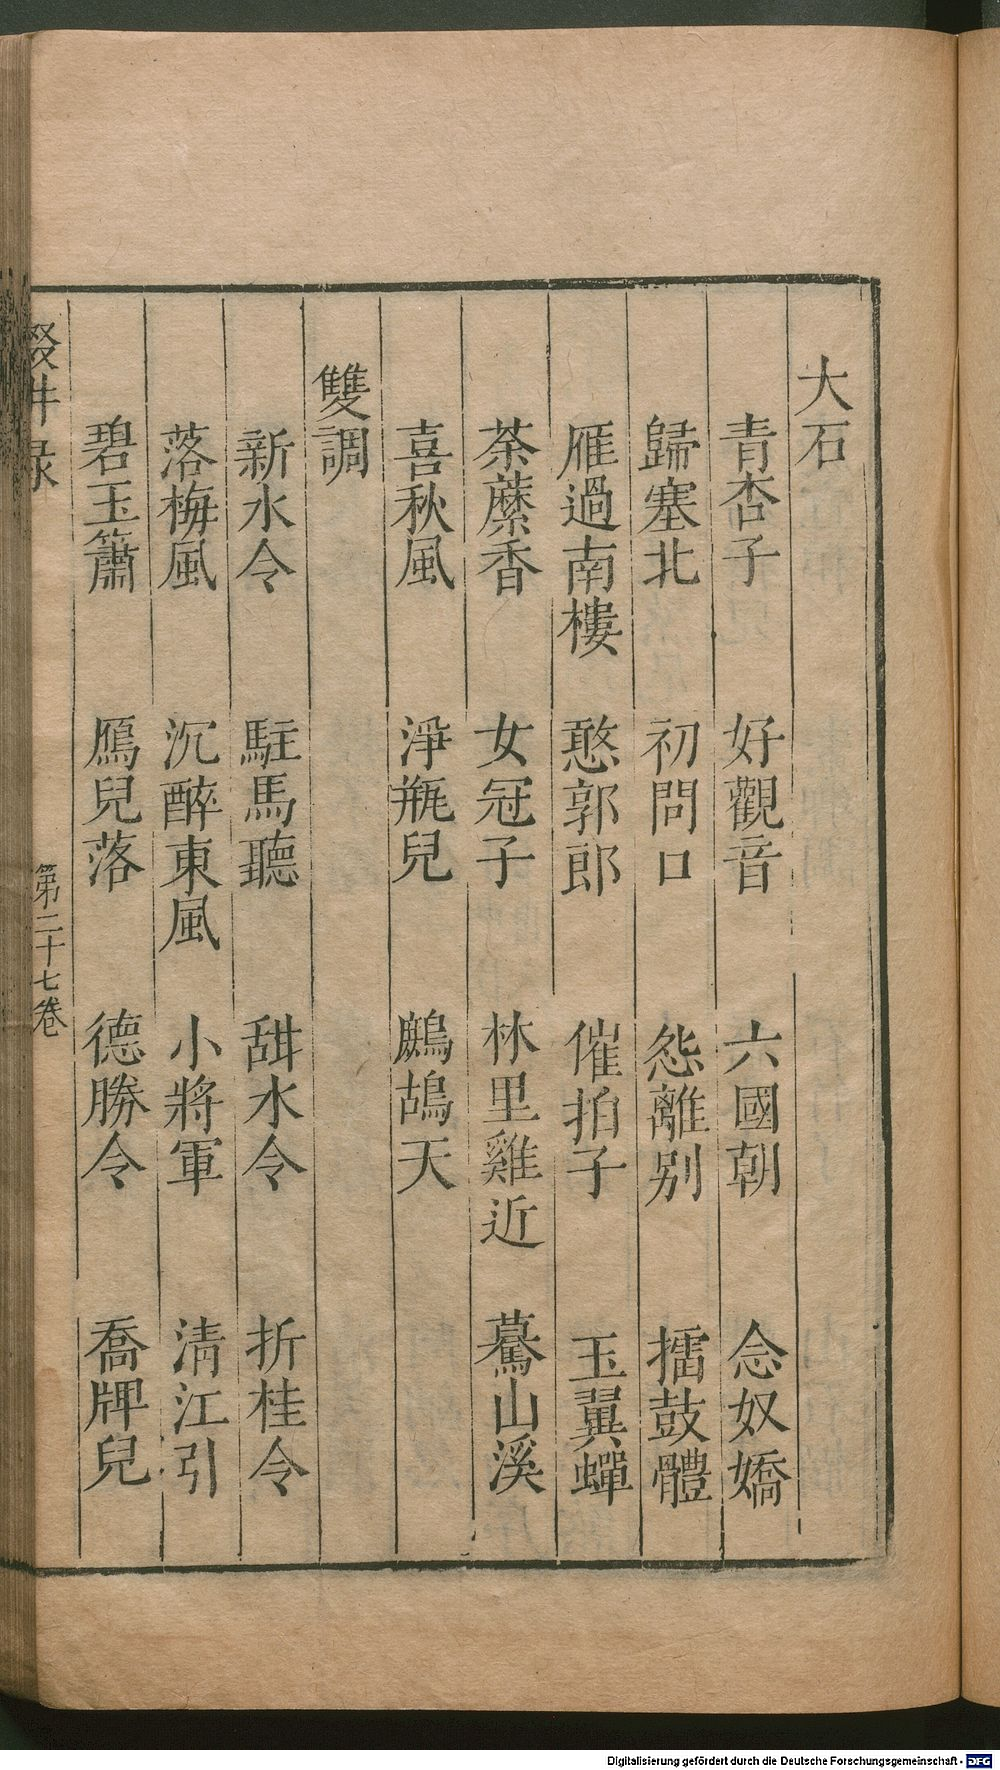 大石
青杏子　好觀音　六國朝　念奴嬌
歸塞北　初問口　怨離别　擂鼓體
雁過南樓　憨郭郎　催拍子　玉翼蟬
荼蘼香　女冠子　林里雞近　驀山溪
喜秋風　淨瓶兒　鷓鴣天
雙調
新水令　駐馬聽　甜水令　折桂令
落梅風　沉醉東風　小將軍　清江引
碧玉簫　鴈兒落　德勝令　喬牌兒
第二十七卷
Digitalisierung gefördert durch die Deutsche Forschungsgemeinschaft - DFG